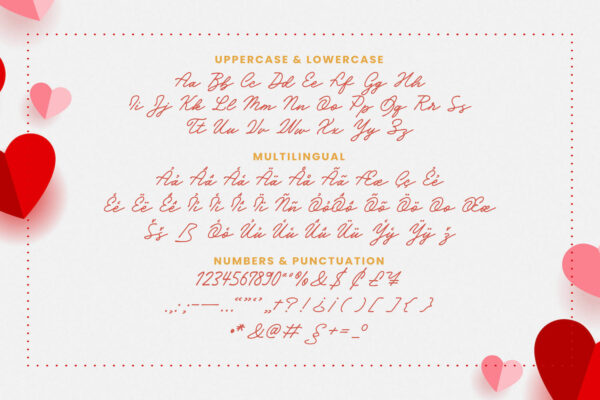 UPPERCASE & LOWERCASE
Aa Bb Cc Dd Ee Ff Gg Hh
Ii Jj Kk Ll Mm Nn Oo Pp Qq Rr Ss
Tt Uu Vv Ww Xx Yy Zz
MULTILINGUAL
Àà Ââ Áá Ää Åå Ãã Ææ Çç Éé
Èè Ëë Êê Íí Ìì Îî Ïï Ññ ÓóÔô Õõ Öö Øø Œœ
Šš ß Òò Úú Ùù Ûû Üü Ýý Ÿÿ ž
NUMBERS & PUNCTUATION
1234567890ªº%&$¢£¥
.,:;-–—...“”‘’„†?!¿¡()[]{}
•*&@#§+=_°